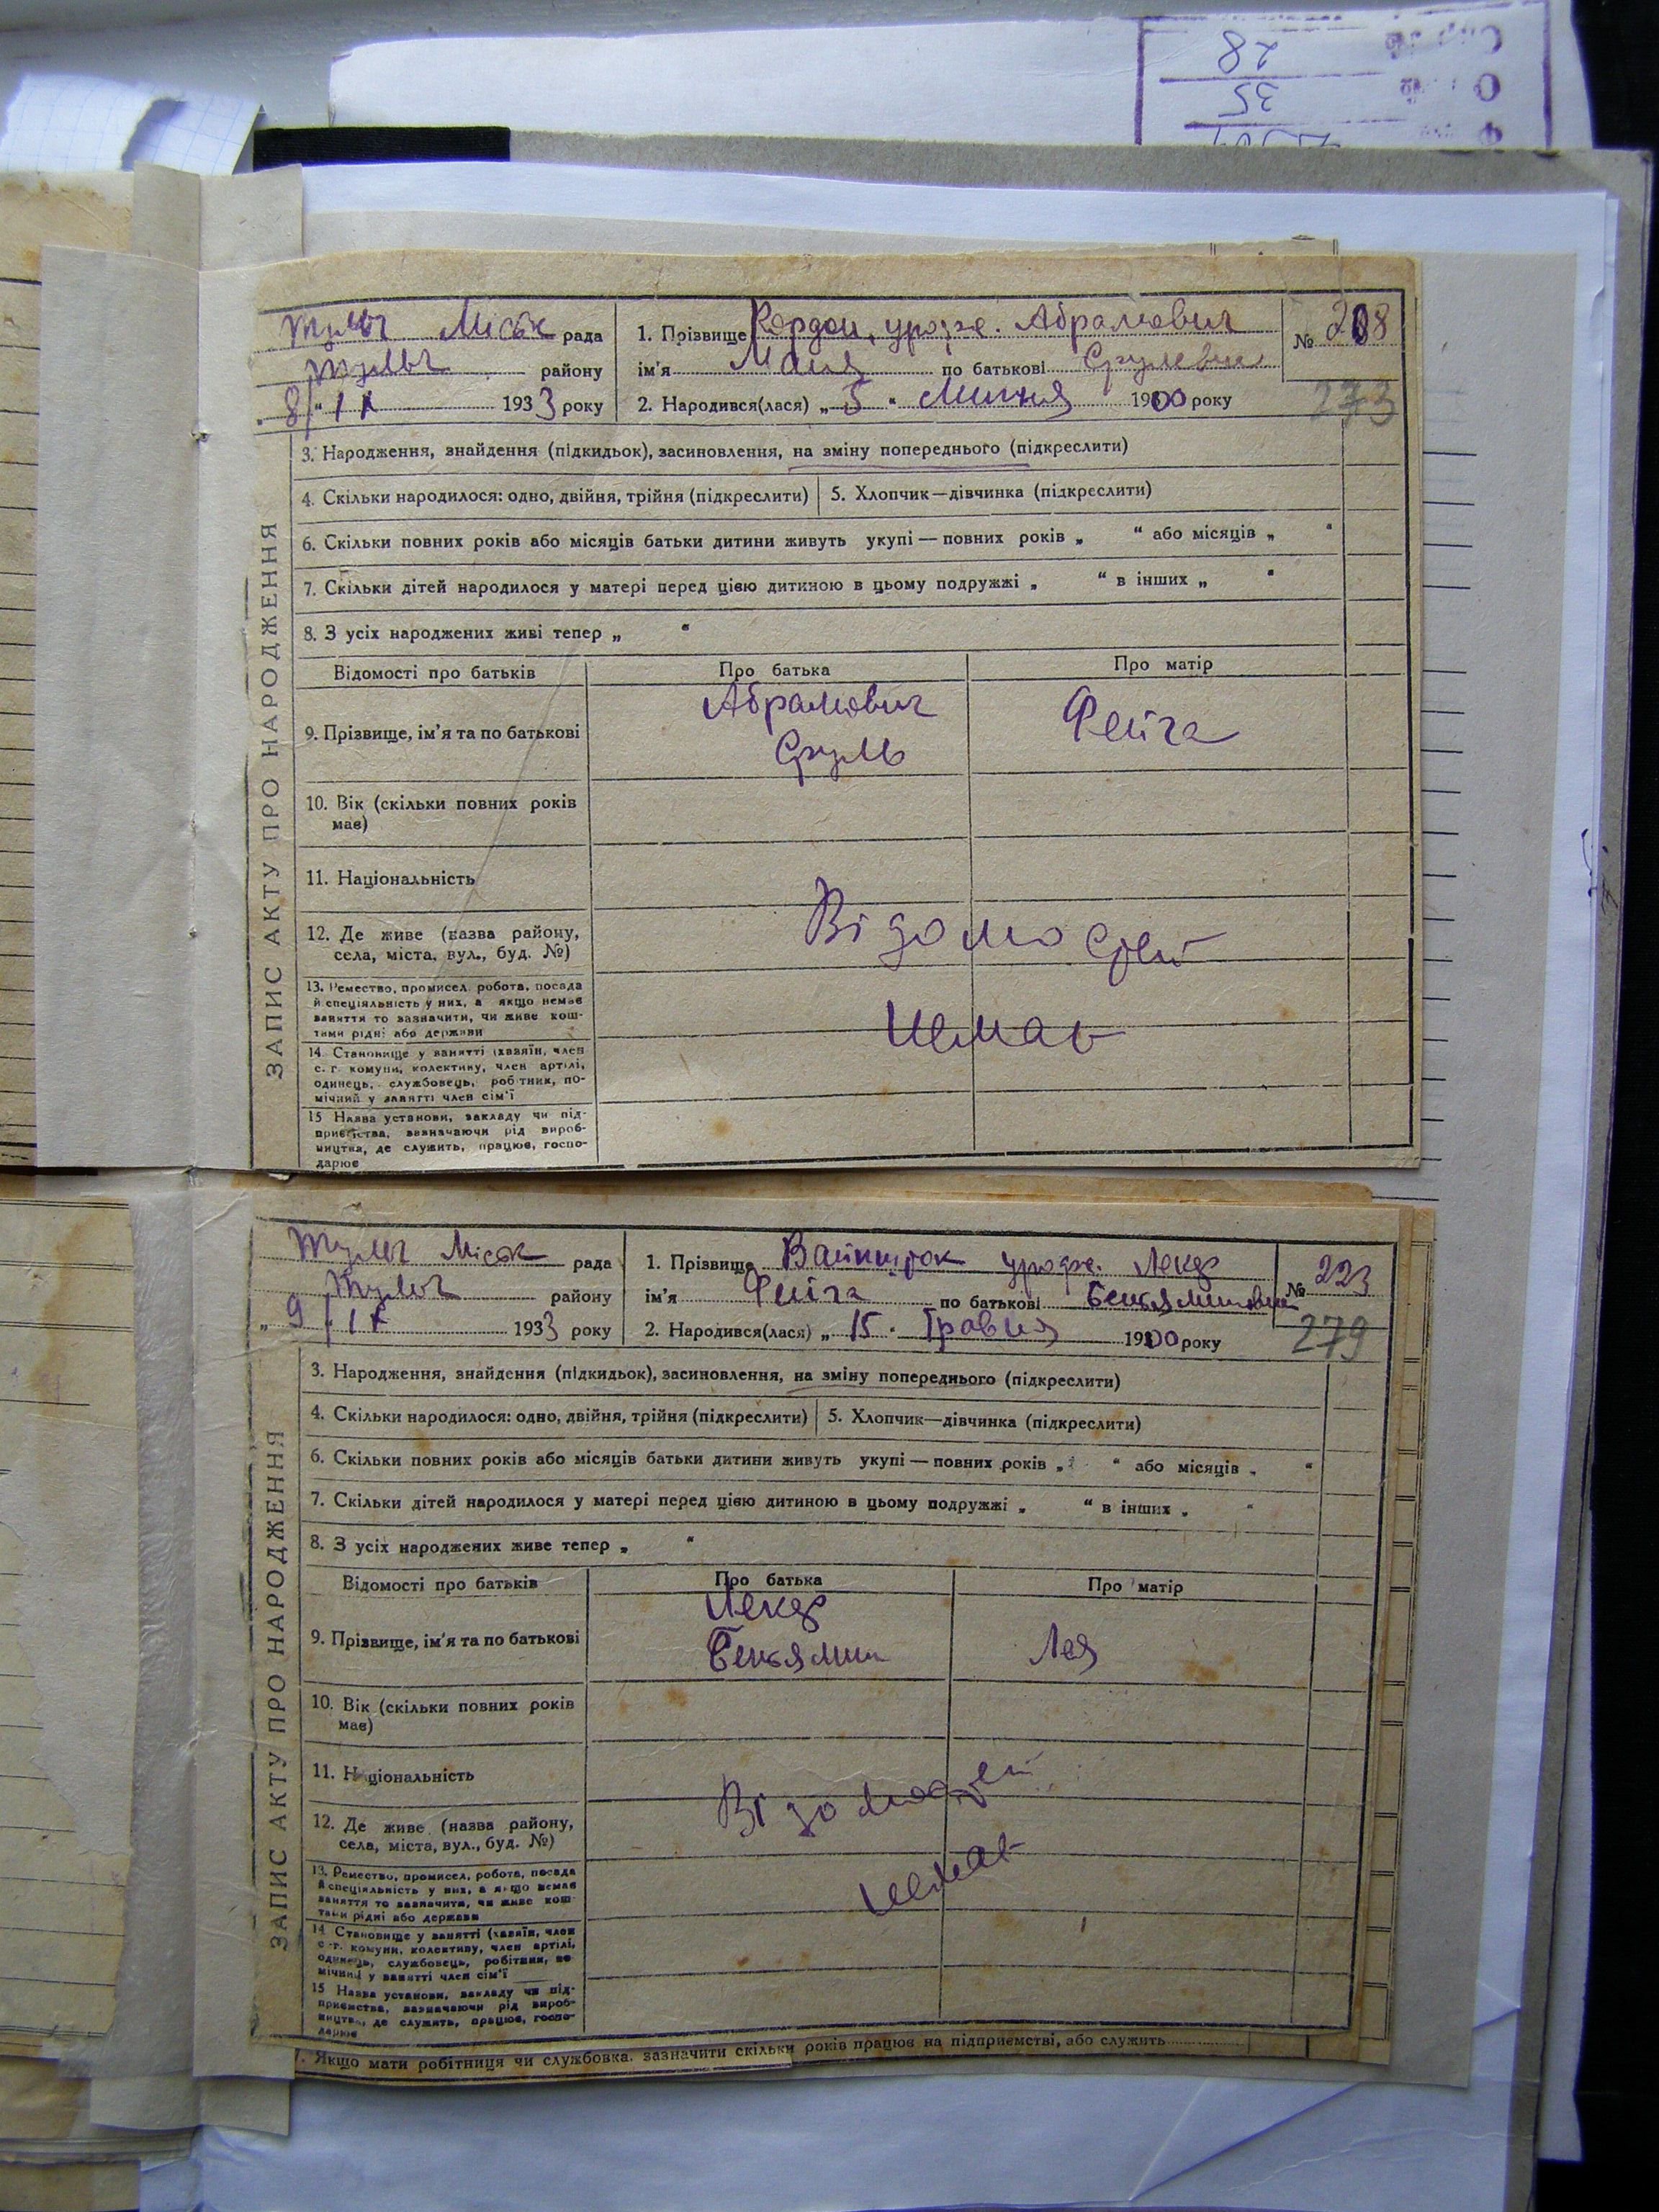 28
35
Тульч Міськ рада
Тульч району
8/ ІХ 1933 року
1. Прізвище Кордон, урожд. Абрамович
ім'я Маня по батькові Срулевна
2. Народився(лася) „ 5 “ Липня 1900 року
№ 208
273
ЗАПИС АКТУ ПРО НАРОДЖЕННЯ
3. Народження, знайдення (підкидьок), засиновлення, на зміну попереднього (підкреслити)
4. Скільки народилося: одно, двійня, трійня (підкреслити) 5. Хлопчик—дівчинка (підкреслити)
6. Скільки повних років або місяців батьки дитини живуть укупі — повних років „ “ або місяців „ “
7. Скільки дітей народилося у матері перед цією дитиною в цьому подружжі „ “ в інших „ “
8. З усіх народжених живі тепер „ “
Відомості про батьків Про батька Про матір
9. Прізвище, ім'я та по батькові
Абрамович
Сруль
Фейга
10. Вік (скільки повних років
має)
11. Національність
12. Де живе (назва району,
села, міста, вул., буд. №)
Відомостей
немає
13. Ремество, промисел, робота, посада
й спеціяльність у них, а якщо немає
заняття то зазначити, чи живе кош-
тами рідні або держави
14. Становище у занятті (хазяїн, член
с. г. комуни, колективу, член артілі,
одинець, службовець, робітник, по-
мічний у занятті член сім'ї
15 Назва установи, закладу чи під-
приємства, зазначаючи рід вироб-
ництва, де служить, працює, госпо-
дарює
Тульч Міськ рада
Тульч району
„ 9 / ІХ 1933 року
1. Прізвище Вайншток урожд. Лекер
ім'я Фейга по батькові Беньяминовна
2. Народився(лася) „ 15 “ Травня 1900 року
№ 223
279
ЗАПИС АКТУ ПРО НАРОДЖЕННЯ
3. Народження, знайдення (підкидьок), засиновлення, на зміну попереднього (підкреслити)
4. Скільки народилося: одно, двійня, трійня (підкреслити) 5. Хлопчик—дівчинка (підкреслити)
6. Скільки повних років або місяців батьки дитини живуть укупі — повних років „ “ або місяців „ “
7. Скільки дітей народилося у матері перед цією дитиною в цьому подружжі „ “ в інших „ “
8. З усіх народжених живе тепер „ “
Відомості про батьків Про батька Про матір
9. Прізвище, ім'я та по батькові
Лекер
Беньямин
Лея
10. Вік (скільки повних років
має)
11. Національність
12. Де живе (назва району,
села, міста, вул., буд. №)
Відомостей
немає
13. Ремество, промисел, робота, посада
й спеціяльність у них, а якщо немає
заняття то зазначити, чи живе кош-
тами рідні або держави
14 Становище у занятті (хазяїн, член
с.-г. комуни, колективу, член артілі,
одинець, службовець, робітник, по-
мічний у занятті член сім'ї
15 Назва установи, закладу чи під-
приємства, зазначаючи рід вироб-
ництва, де служить, працює, госпо-
дарює
7. Якщо мати робітниця чи службовка, зазначити скільки років працює на підприємстві, або служить